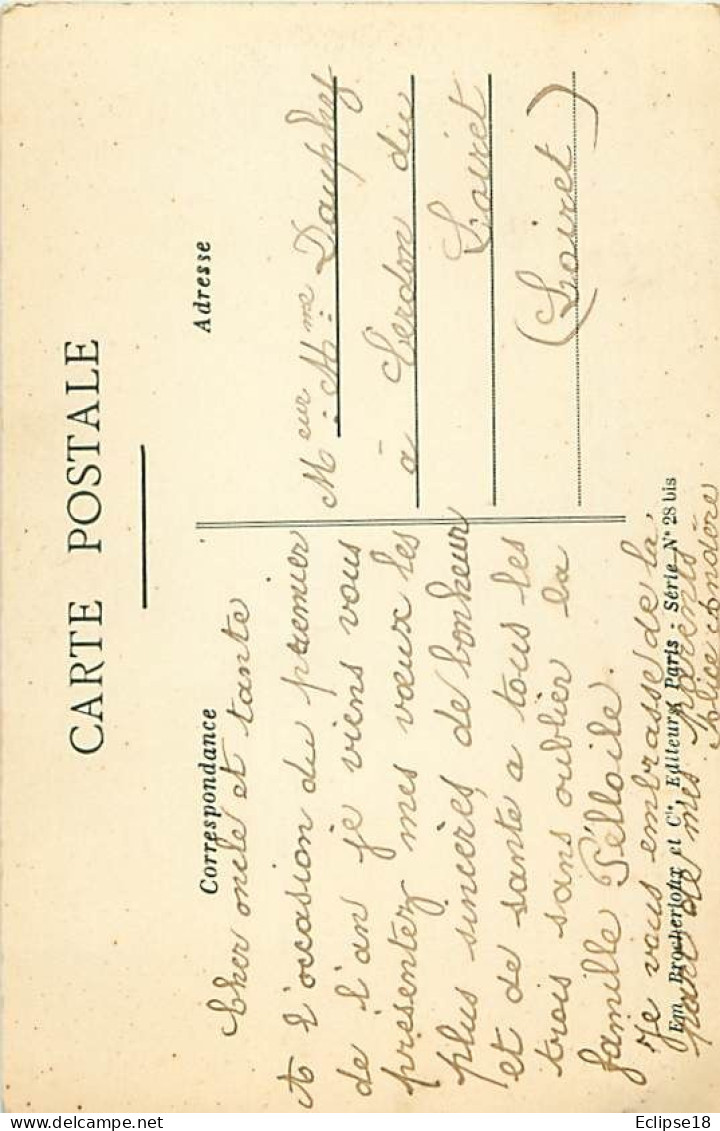 CARTE POSTALE
Correspondance
Cher oncle et tante
A l'occasion du premier
de l'an je viens vous
présentez mes vœux les
plus sincères, de bonheur
et de santé a tous les
trois sans oublier la
famille Pélloile.
Je vous embrasse de la
part de mes parents
Alice Andère
Adresse
Meur Mme Dauphy
à Cerdon du
Loiret
(Loiret)
Em. Brocherioux et Cie, Editeurs, Paris - Série N° 28 bis
Eclipse18